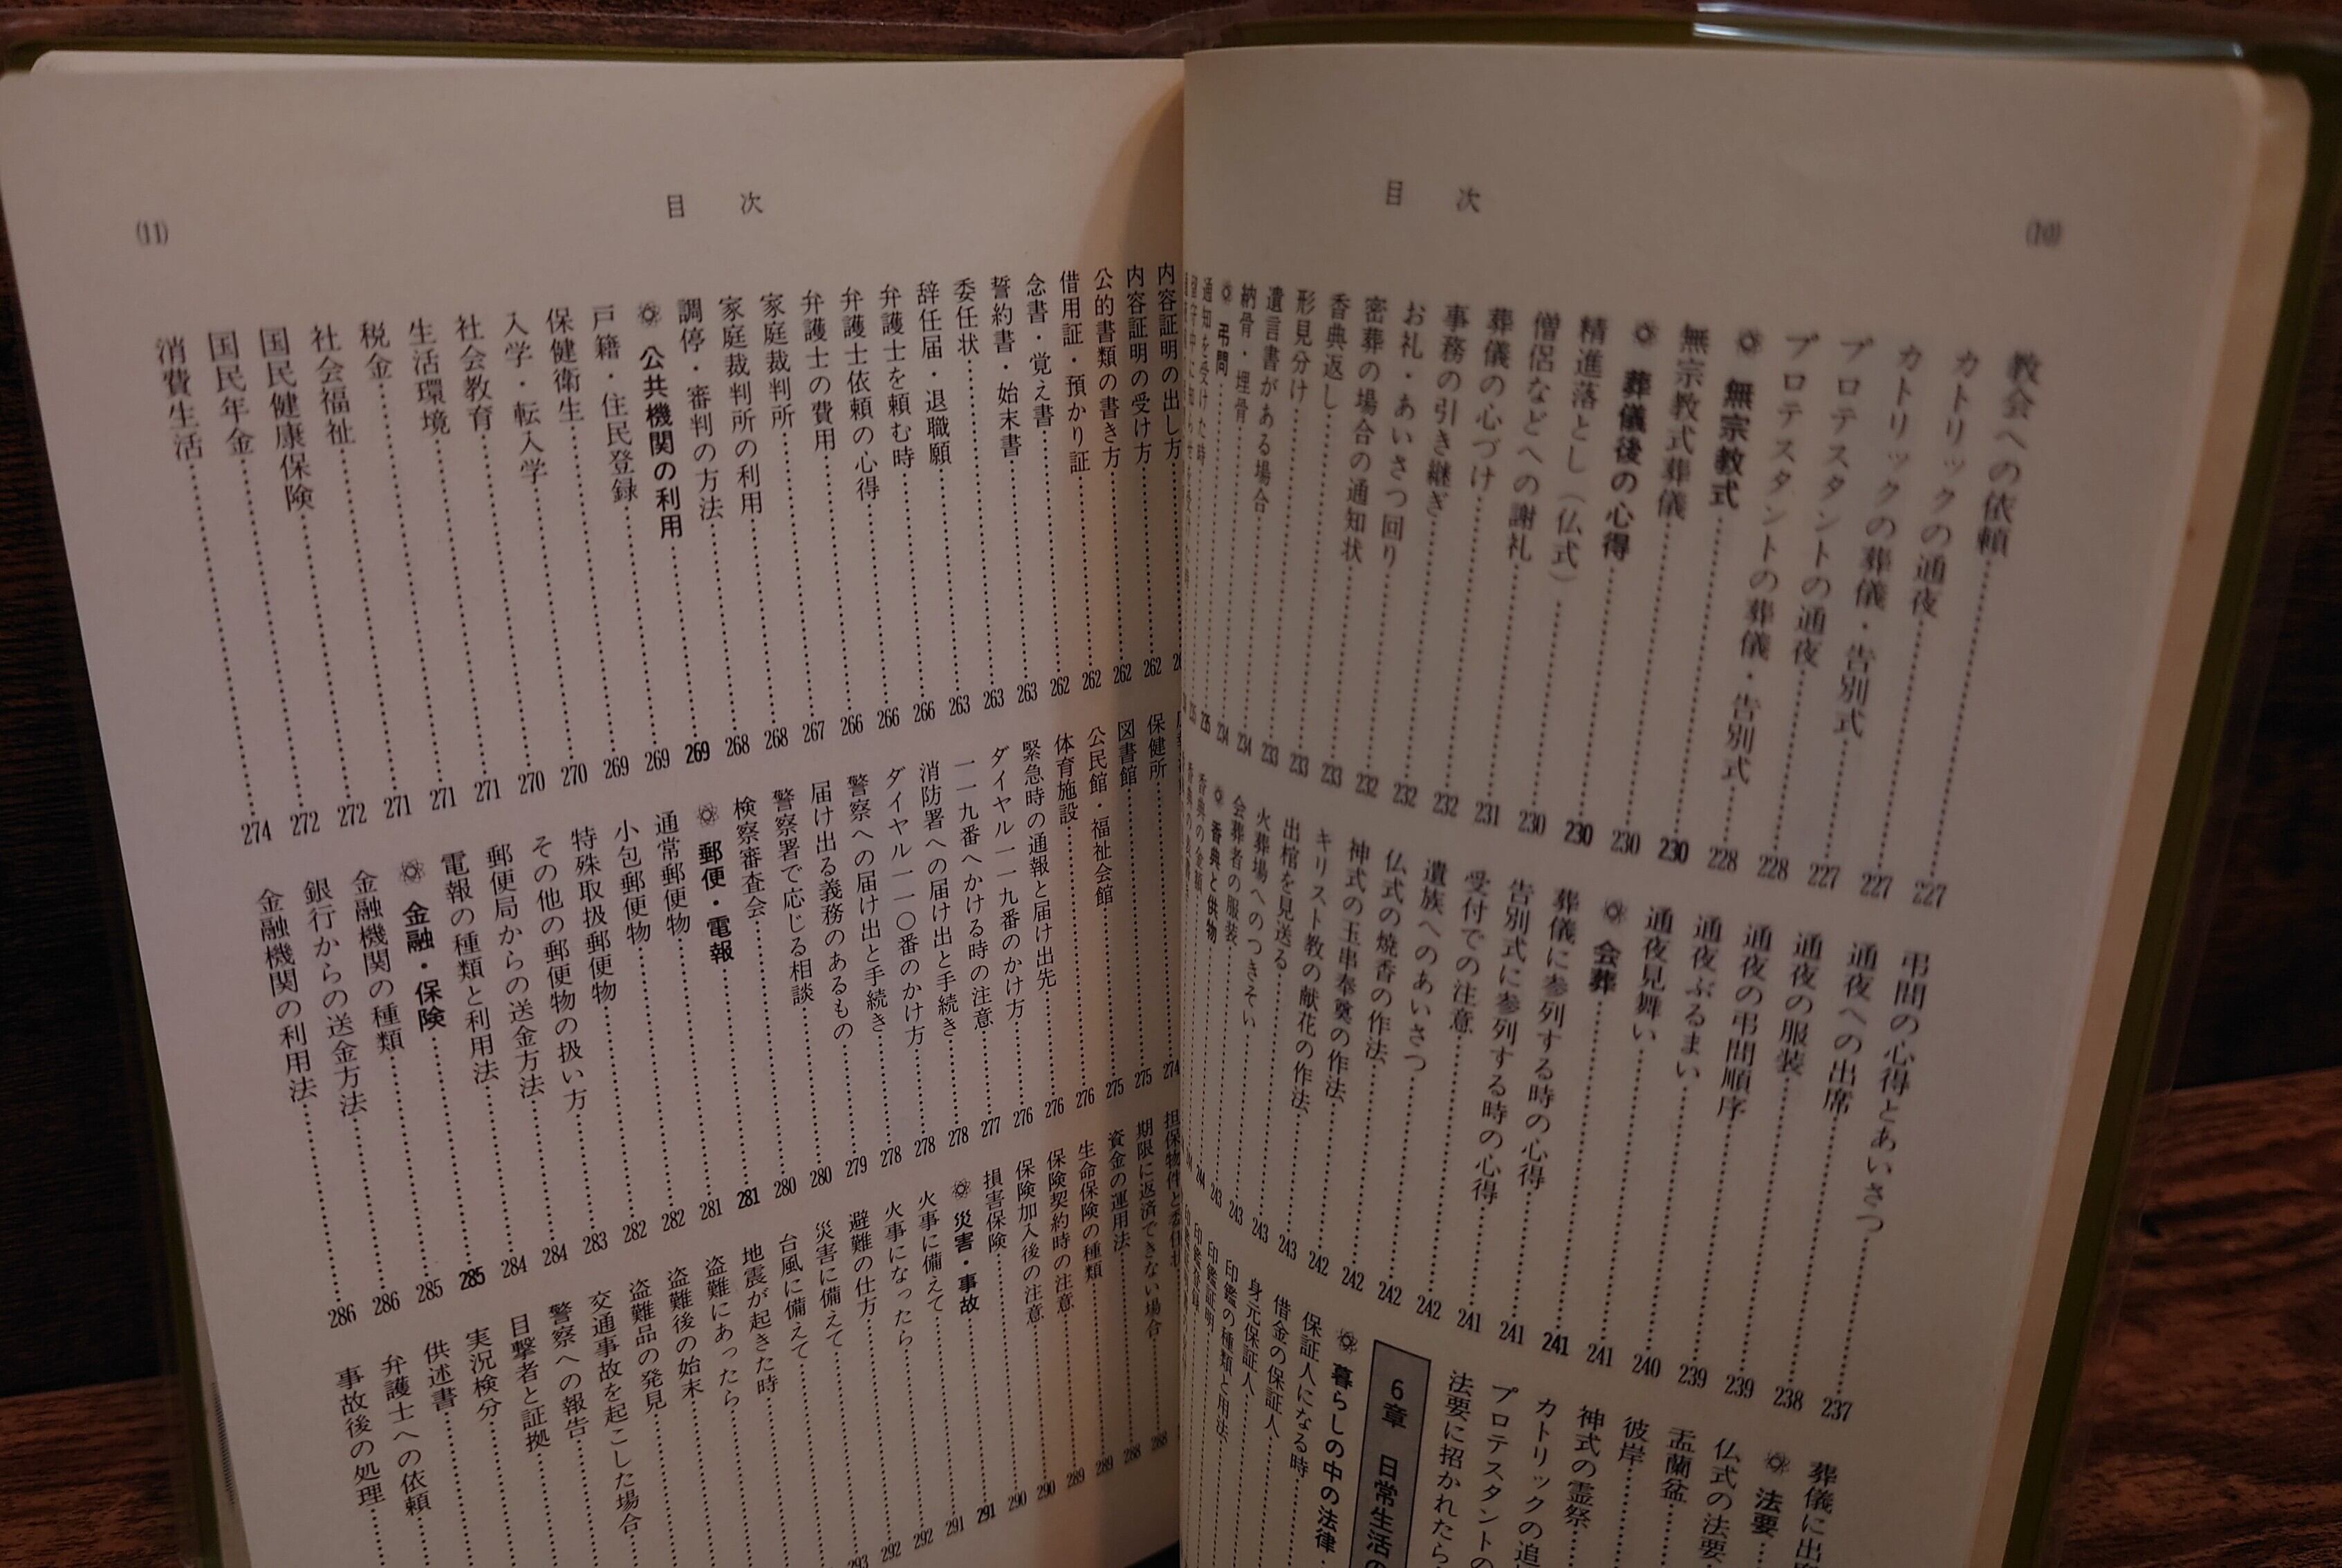 (10)
目次
教会への依頼……227
カトリックの通夜……227
カトリックの葬儀・告別式……227
プロテスタントの通夜……228
プロテスタントの葬儀・告別式……228
無宗教式……230
無宗教式葬儀……230
葬儀後の心得……230
精進落とし(仏式)……230
僧侶などへの謝礼……231
葬儀の心づけ……232
事務の引き継ぎ……232
お礼・あいさつ回り……232
密葬の場合の通知状……233
香典返し……233
形見分け……233
遺言書がある場合……234
納骨・埋骨……234
弔問……235
通知を受けた時……235
弔問の心得とあいさつ……237
通夜への出席……238
通夜の服装……239
通夜の弔問順序……239
通夜ぶるまい……240
通夜見舞い……241
会葬……241
葬儀に参列する時の心得……241
告別式に参列する時の心得……241
受付での注意……242
遺族へのあいさつ……242
仏式の焼香の作法……242
神式の玉串奉奠の作法……242
キリスト教の献花の作法……243
出棺を見送る……243
火葬場へのつきそい……243
会葬者の服装……243
香典と供物……244
香典の金額
葬儀に出
法要
仏式の法要
盂蘭盆
彼岸
神式の霊祭
カトリックの追
プロテスタントの
法要に招かれたら
6章 日常生活の
暮らしの中の法律
保証人になる時
借金の保証人
身元保証人
印鑑の種類と用法
印鑑証明
(11)
目次
内容証明の出し方
内容証明の受け方……262
公的書類の書き方……262
借用証・預かり証……262
念書・覚え書……262
誓約書・始末書……263
委任状……263
辞任届・退職願……263
弁護士を頼む時……266
弁護士依頼の心得……266
弁護士の費用……266
家庭裁判所……267
家庭裁判所の利用……268
調停・審判の方法……268
公共機関の利用……269
戸籍・住民登録……269
保健衛生……269
入学・転入学……270
社会教育……270
生活環境……271
税金……271
社会福祉……271
国民健康保険……272
国民年金……272
消費生活……274
保健所……274
図書館……275
公民館・福祉会館……275
体育施設……276
緊急時の通報と届け出先……276
ダイヤル一一九番のかけ方……276
一一九番へかける時の注意……277
消防署への届け出と手続き……278
ダイヤル一一〇番のかけ方……278
警察への届け出と手続き……278
届け出る義務のあるもの……279
警察署で応じる相談……280
検察審査会……280
郵便・電報……281
通常郵便物……281
小包郵便物……282
特殊取扱郵便物……282
その他の郵便物の扱い方……283
郵便局からの送金方法……284
電報の種類と利用法……284
金融・保険……285
金融機関の種類……285
銀行からの送金方法……286
金融機関の利用法……286
担保物件と委任状
期限に返済できない場合……288
資金の運用法……288
生命保険の種類……289
保険契約時の注意……289
保険加入後の注意……290
損害保険……290
災害・事故……291
火事に備えて……291
火事になったら……292
避難の仕方……292
災害に備えて……293
台風に備えて
地震が起きた時
盗難にあったら
盗難後の始末
盗難品の発見
交通事故を起こした場合
警察への報告
目撃者と証拠
実況検分
供述書
弁護士への依頼
事故後の処理